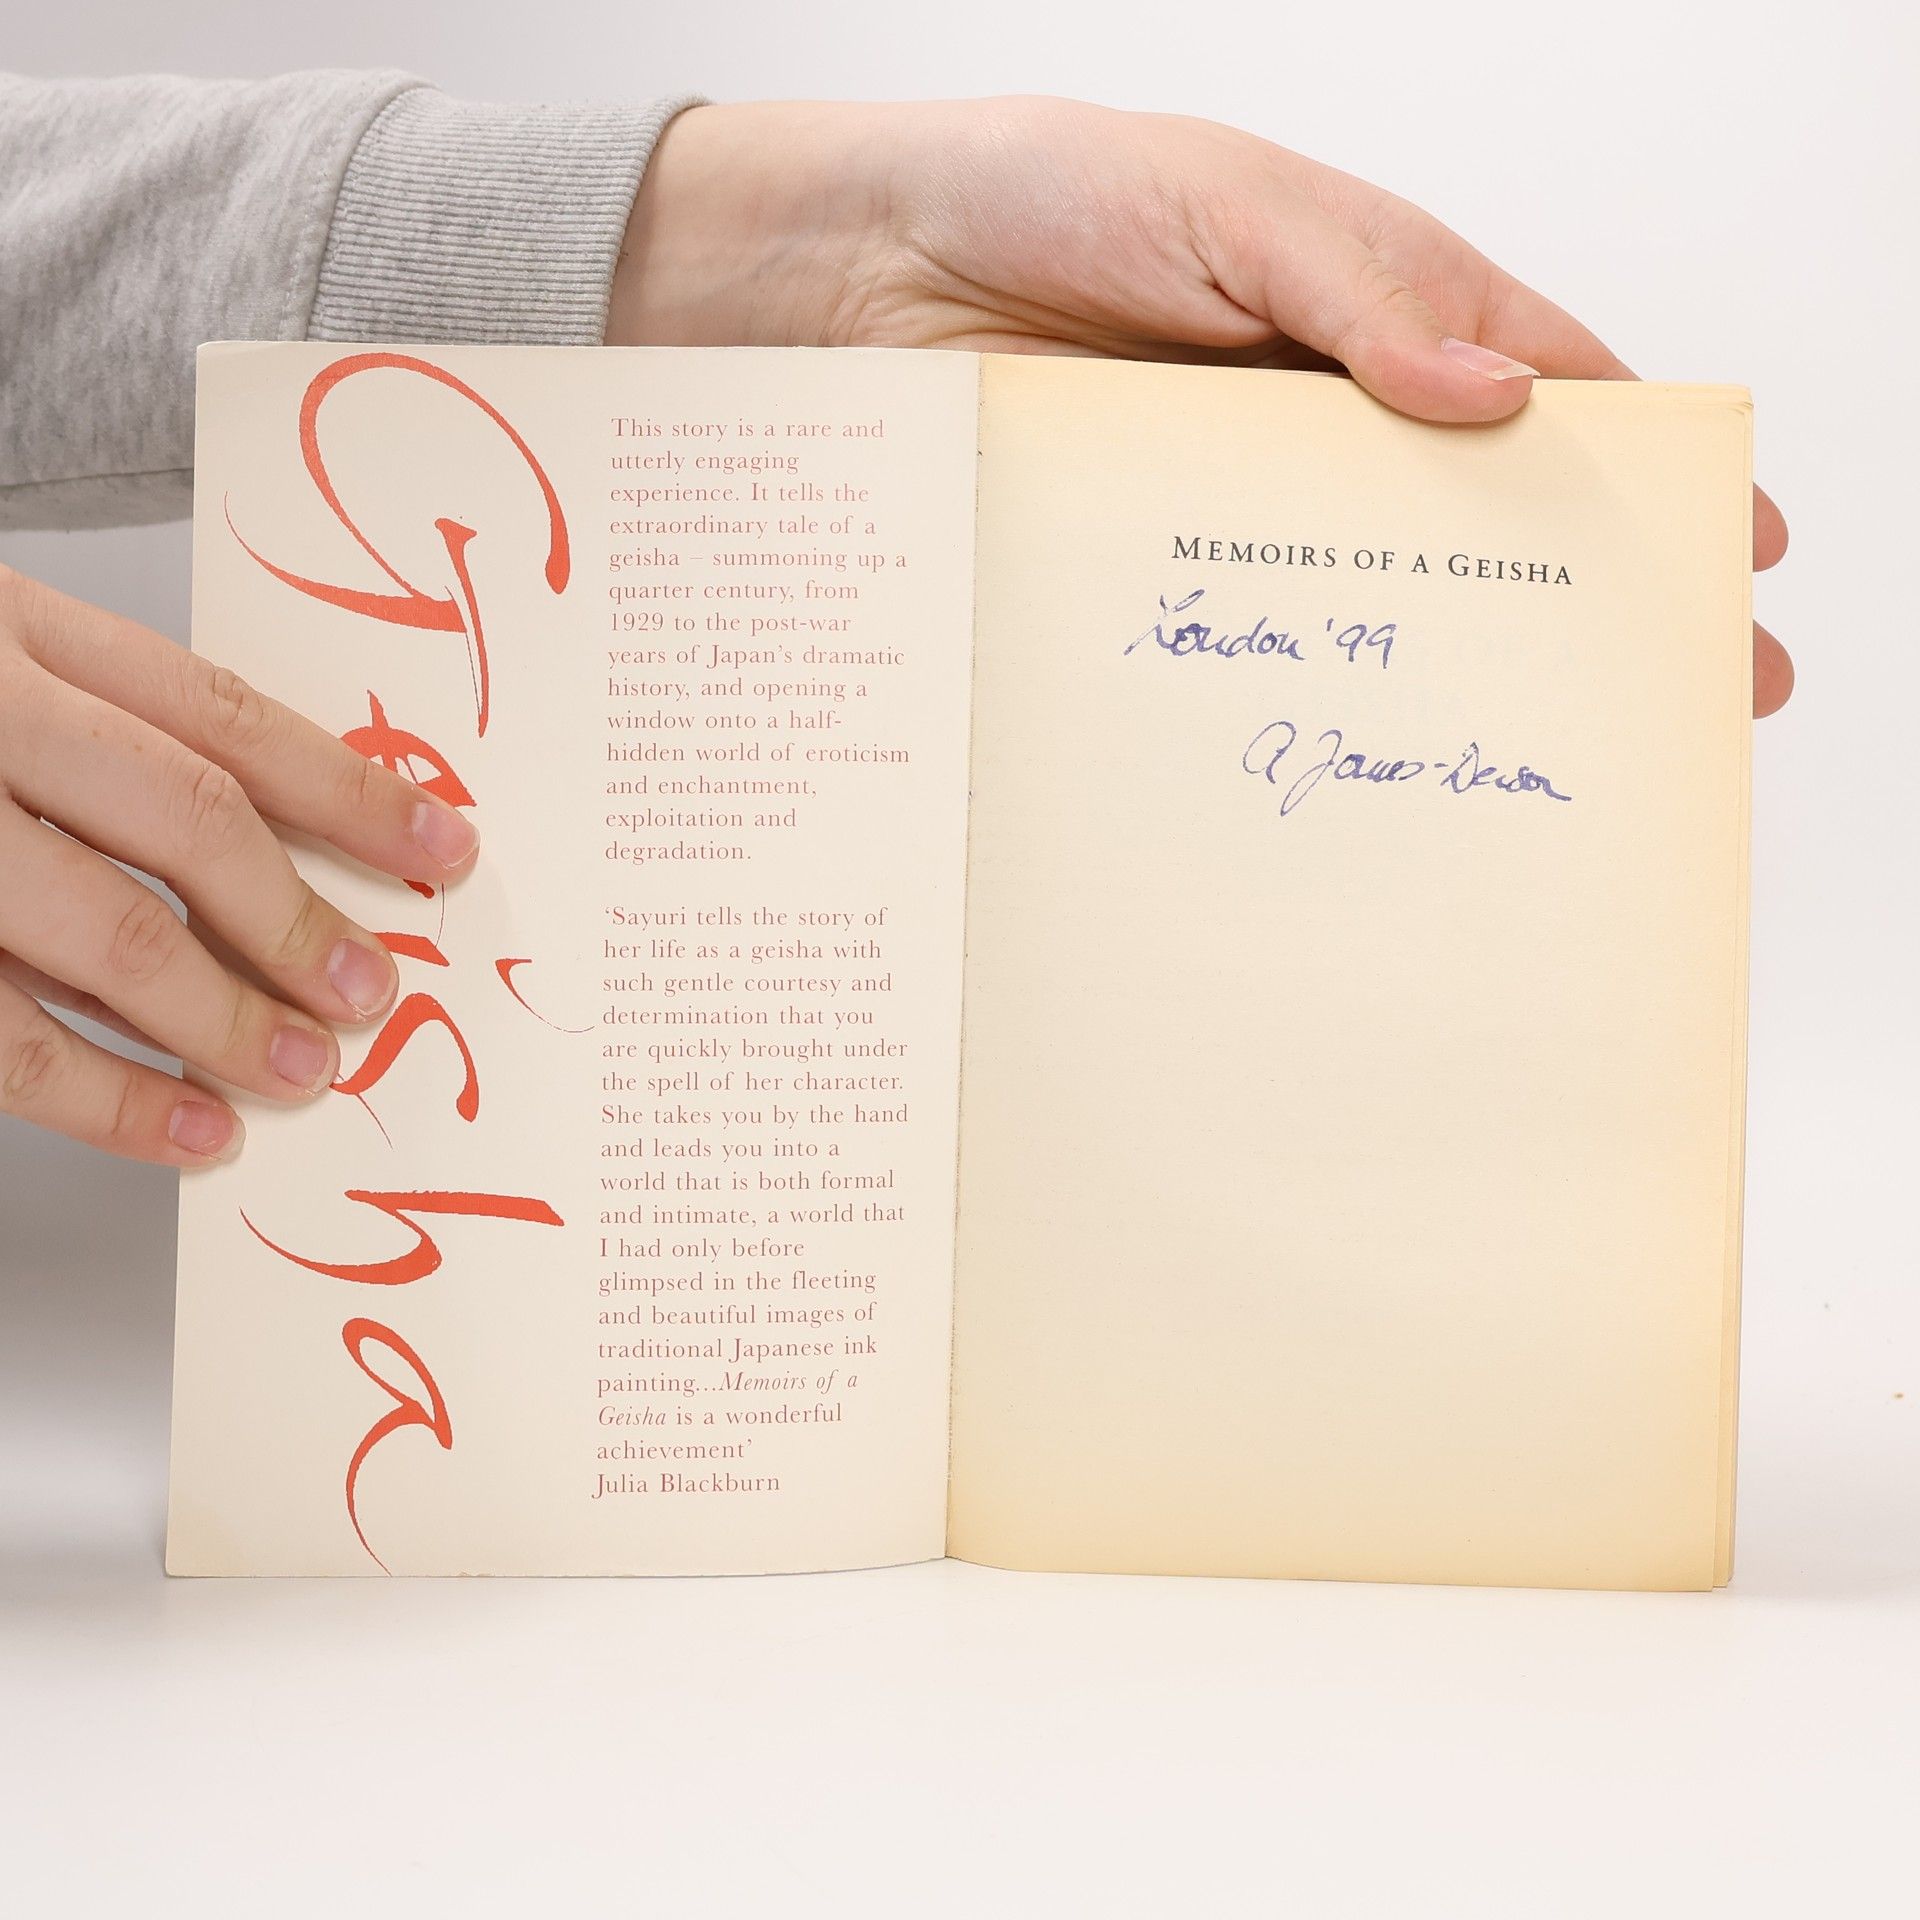 Geisha
This story is a rare and
utterly engaging
experience. It tells the
extraordinary tale of a
geisha – summoning up a
quarter century, from
1929 to the post-war
years of Japan's dramatic
history, and opening a
window onto a half-
hidden world of eroticism
and enchantment,
exploitation and
degradation.
‘Sayuri tells the story of
her life as a geisha with
such gentle courtesy and
determination that you
are quickly brought under
the spell of her character.
She takes you by the hand
and leads you into a
world that is both formal
and intimate, a world that
I had only before
glimpsed in the fleeting
and beautiful images of
traditional Japanese ink
painting...Memoirs of a
Geisha is a wonderful
achievement’
Julia Blackburn
MEMOIRS OF A GEISHA
London '99
A James-